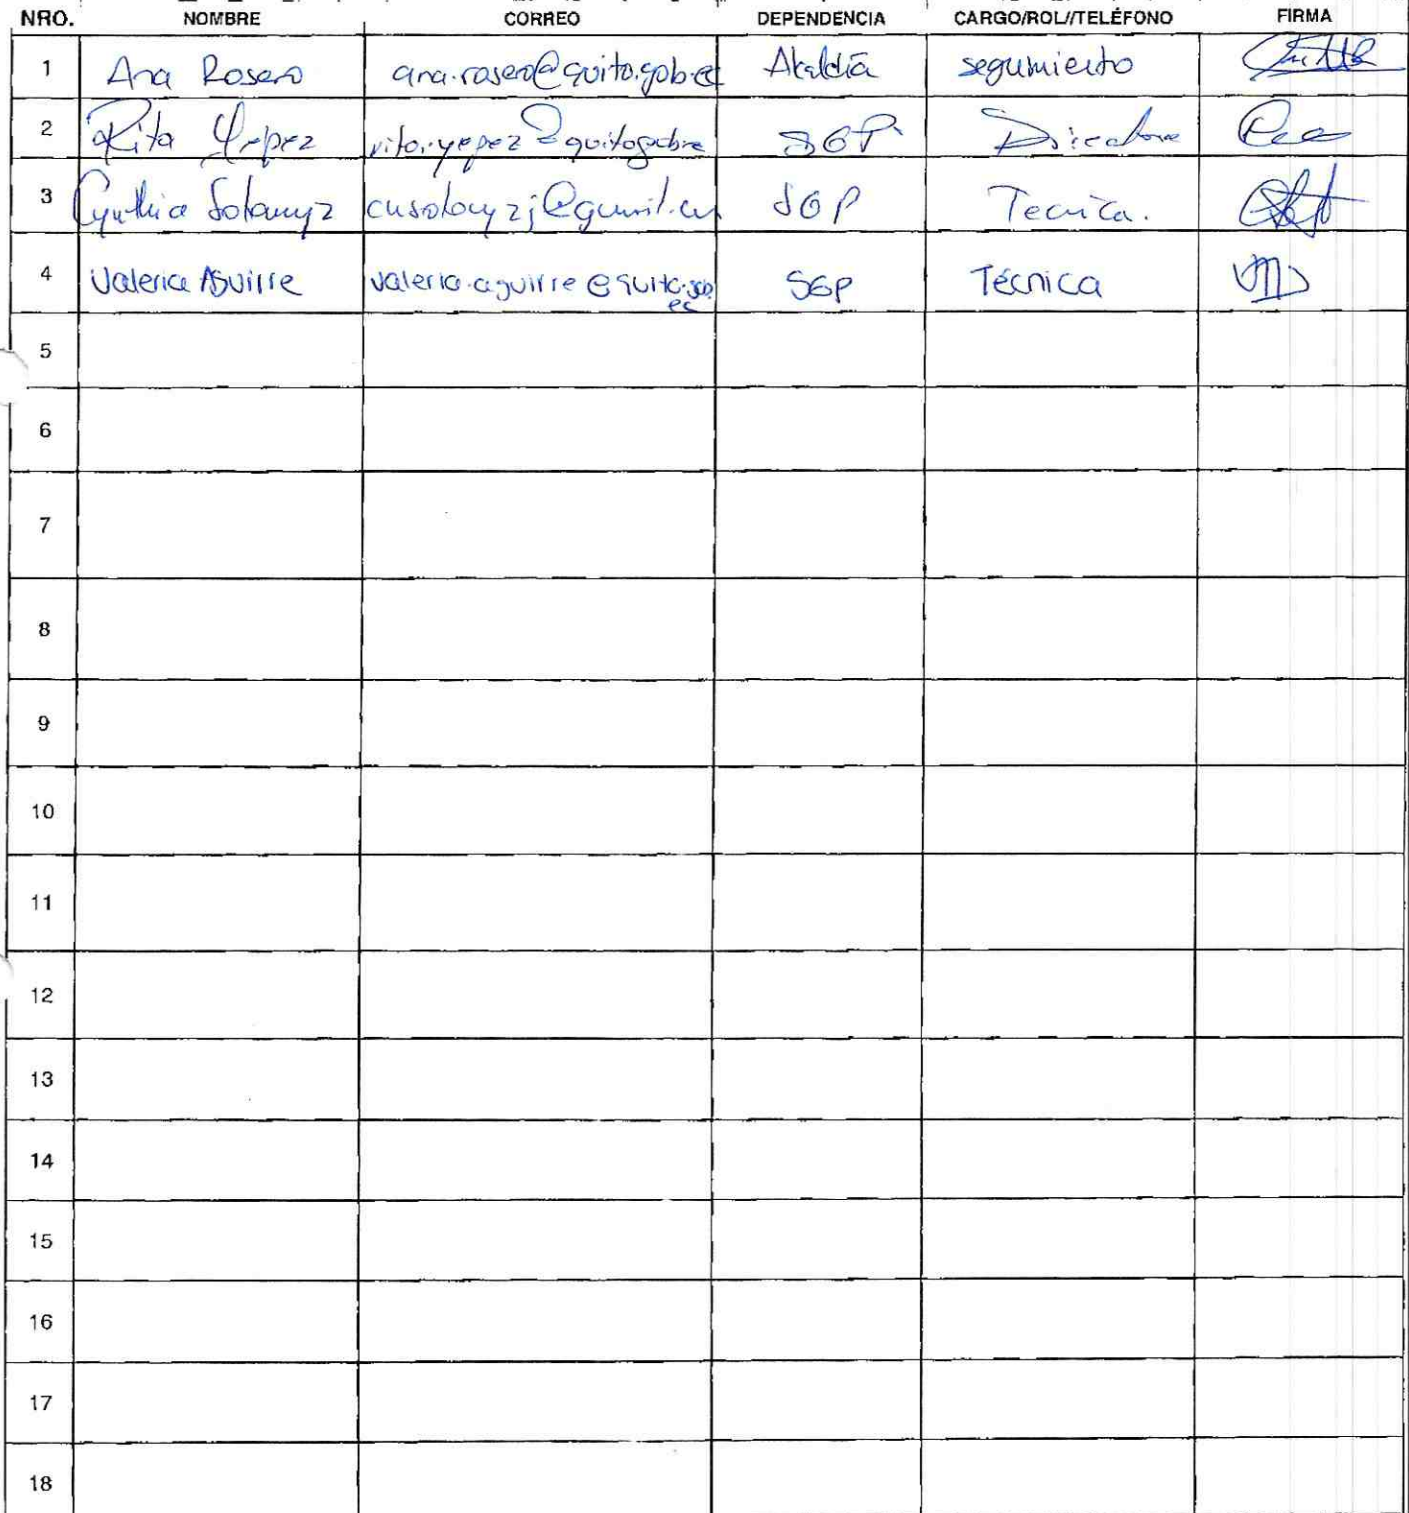 NRO. NOMBRE CORREO DEPENDENCIA CARGO/ROL//TELÉFONO FIRMA
1 Ana Rosero ana.rosero@quito.gob.ec Alcaldía seguimiento
2 Rita Yepez rita.yepez@quito.gob.ec SGP Directora
3 Cynthia SGP Tecnica.
4 Valeria Aguirre valeria.aguirre@quito.gob.ec SGP Técnica
5
6
7
8
9
10
11
12
13
14
15
16
17
18